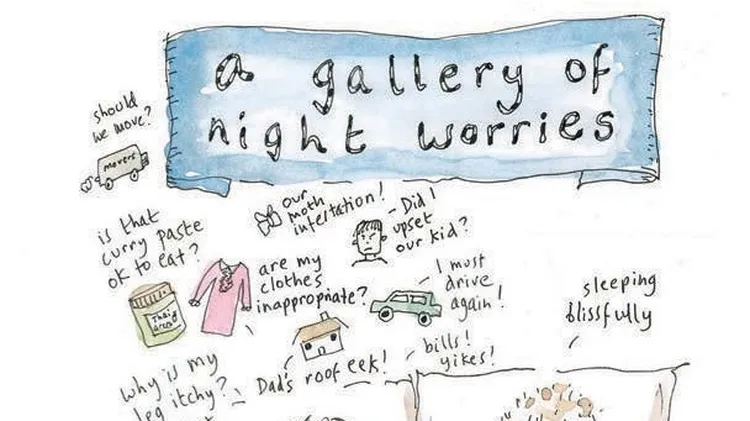 a gallery of
night worries
should
we move?
movers
our
moth
infestation!
Did I
upset
our kid?
is that
curry paste
ok to eat?
Thai
green
are my
clothes
inappropriate?
I must
drive
again!
sleeping
blissfully
bills!
yikes!
Dad's roof eek!
why is my
leg itchy?